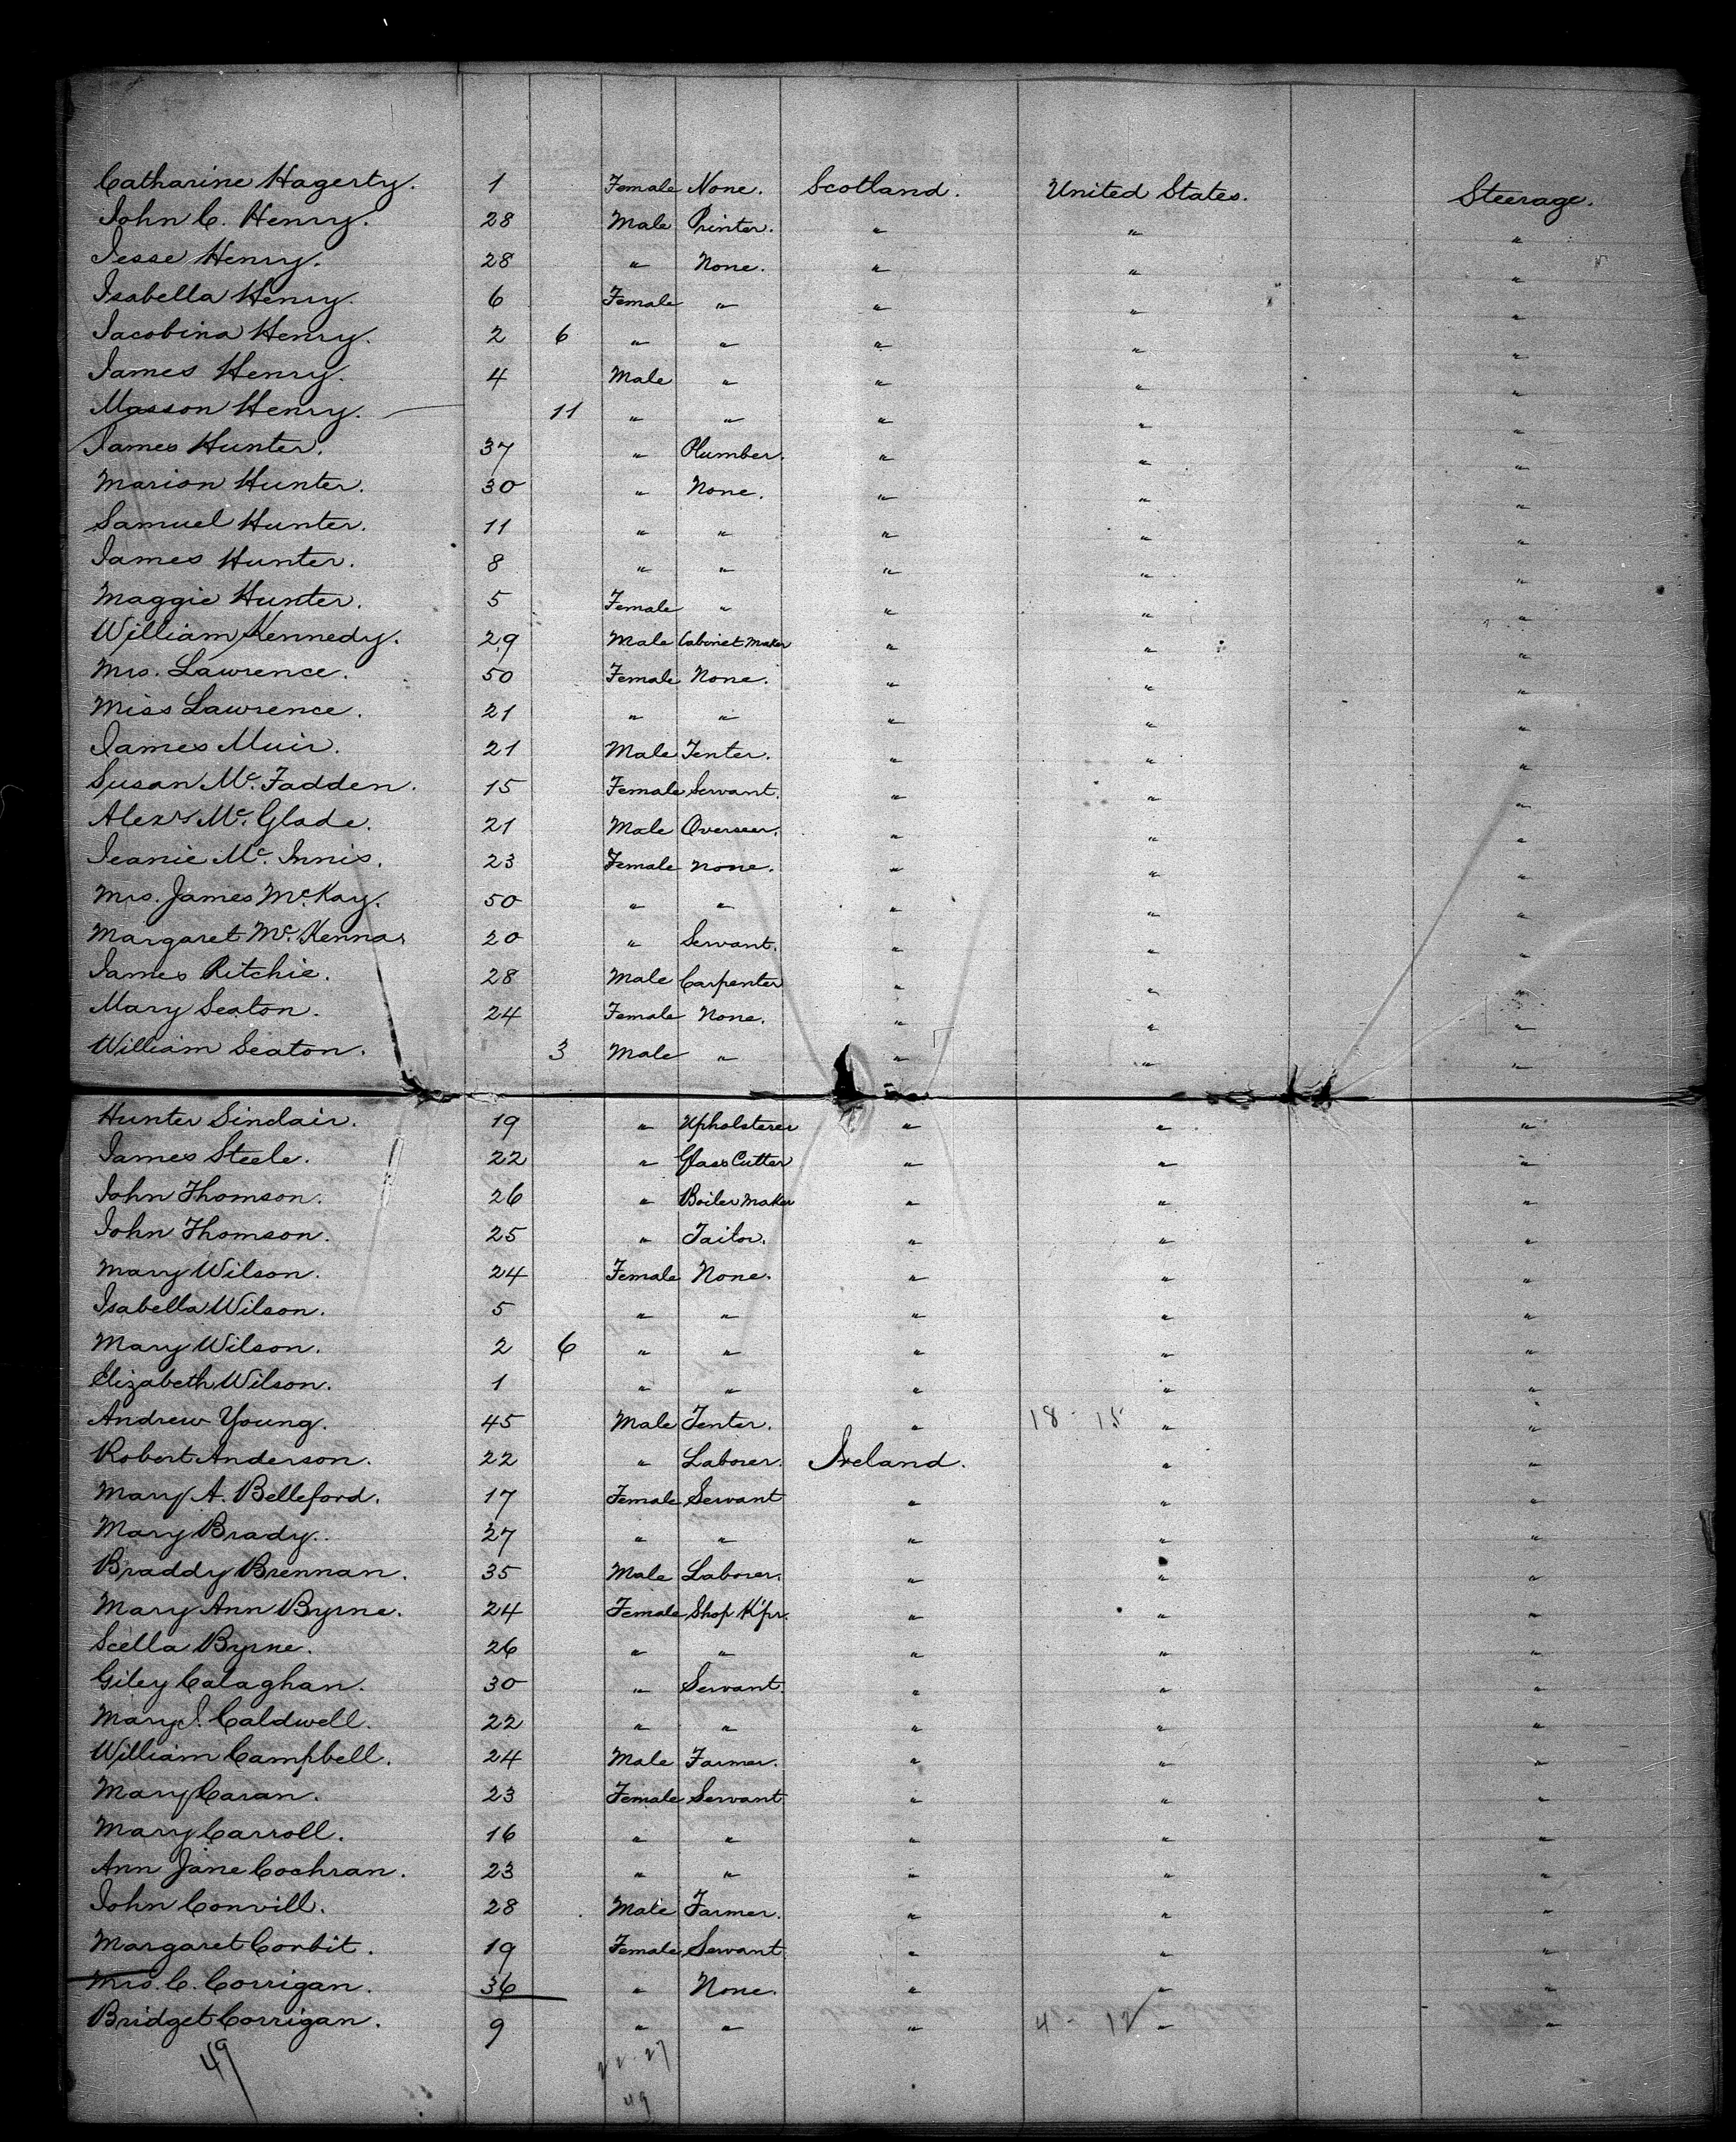 Catharine Hagerty. 1 Female None. Scotland. United States. Steerage.
John C. Henry. 28 Male Printer. " " "
Jesse Henry. 28 " None. " " "
Isabella Henry. 6 Female " " " "
Jacobina Henry. 2 6 " " " " "
James Henry. 4 Male " " " "
Masson Henry. 11 " " " " "
James Hunter. 37 " Plumber. " " "
Marion Hunter. 30 " None. " " "
Samuel Hunter. 11 " " " " "
James Hunter. 8 " " " " "
Maggie Hunter. 5 Female " " " "
William Kennedy. 29 Male Cabinet Maker " " "
Mrs. Lawrence. 50 Female None. " " "
Miss Lawrence. 21 " " " " "
James Muir. 21 Male Tenter. " " "
Susan Mc. Fadden. 15 Female Servant. " " "
Alexr Mc. Glade. 21 Male Overseer. " " "
Jeanie Mc. Innis. 23 Female None. " " "
Mrs. James McKay. 50 " " " " "
Margaret Mc. Kenna 20 " Servant. " " "
James Ritchie. 28 Male Carpenter " " "
Mary Seaton. 24 Female None. " " "
William Seaton. 3 Male " " " "
Hunter Sinclair. 19 " Upholsterer " " "
James Steele. 22 " Glass Cutter " " "
John Thomson. 26 " Boiler Maker " " "
John Thomson. 25 " Tailor. " " "
Mary Wilson. 24 Female None. " " "
Isabella Wilson. 5 " " " " "
Mary Wilson. 2 6 " " " " "
Elizabeth Wilson. 1 " " " " "
Andrew Young. 45 Male Tenter. " 18 - 15 " "
Robert Anderson. 22 " Laborer. Ireland. " "
Mary A. Belleford. 17 Female Servant " " "
Mary Brady. 27 " " " " "
Braddy Brennan. 35 Male Laborer. " " "
Mary Ann Byrne. 24 Female Shop K'pr. " " "
Scella Byrne. 26 " " " " "
Giley Calaghan. 30 " Servant. " " "
Mary J. Caldwell. 22 " " " " "
William Campbell. 24 Male Farmer. " " "
Mary Caran. 23 Female Servant " " "
Mary Carroll. 16 " " " " "
Ann Jane Cochran. 23 " " " " "
John Convill. 28 Male Farmer. " " "
Margaret Corbit. 19 Female Servant " " "
Mrs. C. Corrigan. 36 " None. " " "
Bridget Corrigan. 9 " " " 4 - 12 " "
49 22 27
49